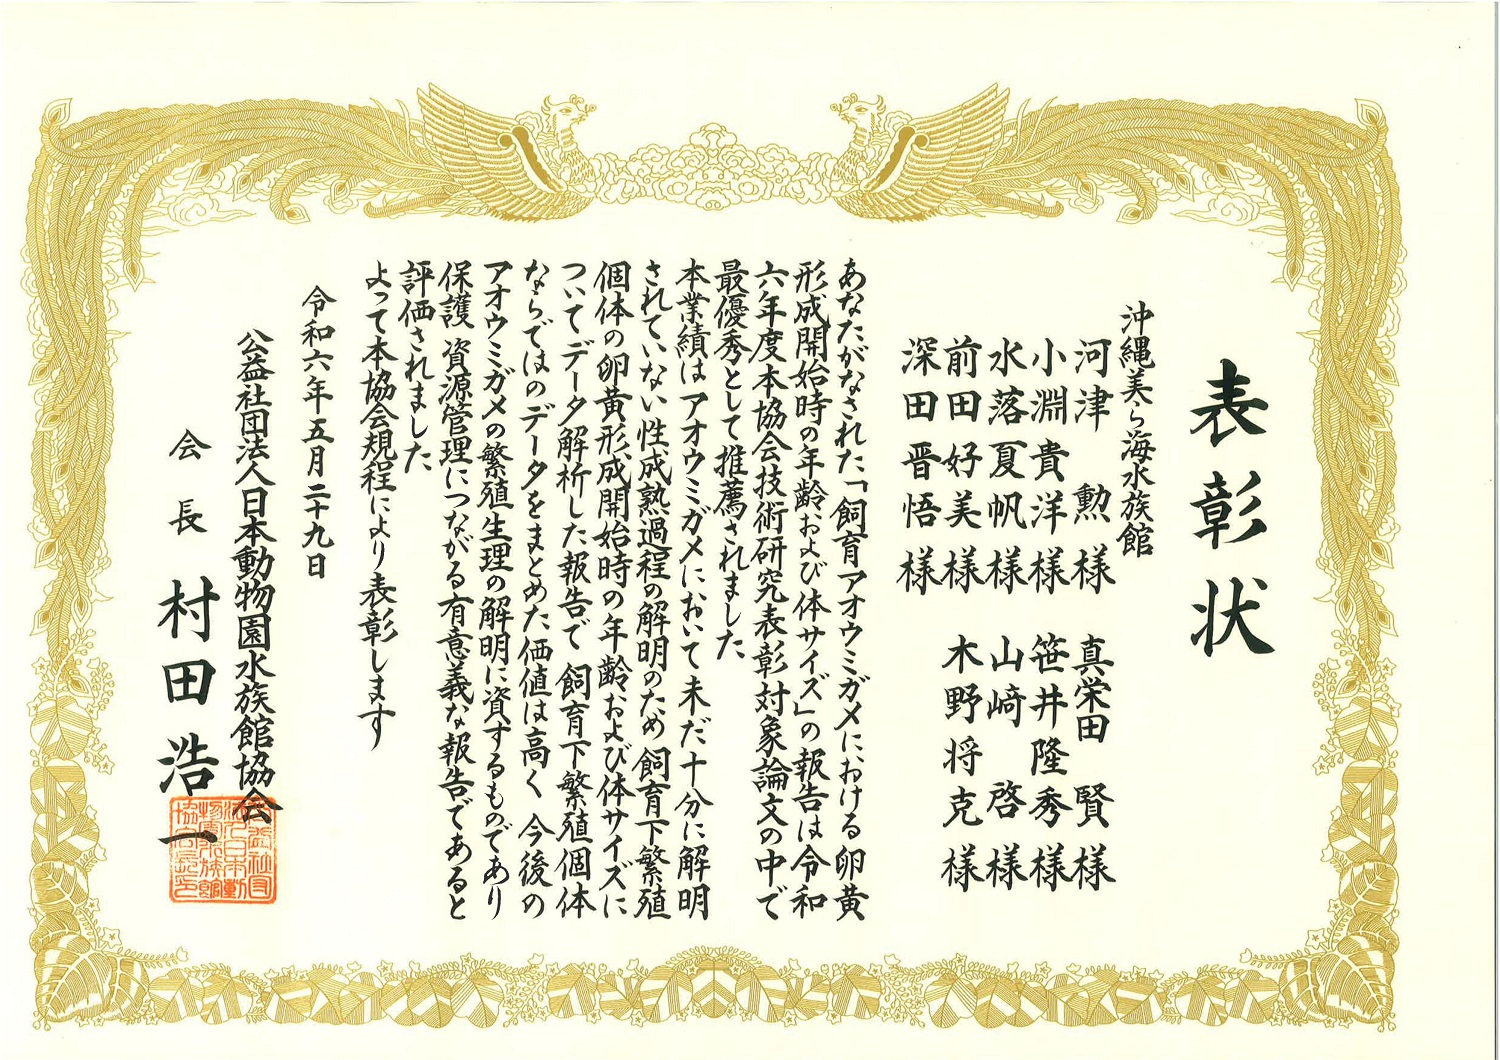 表彰状
沖縄美ら海水族館
河津 勲 様 真栄田 賢 様
小淵貴洋 様 笹井隆秀 様
水落夏帆 様 山﨑 啓 様
前田好美 様 木野将克 様
深田晋悟 様
あなたがなされた「飼育アオウミガメにおける卵黄
形成開始時の年齢および体サイズ」の報告は令和
六年度本協会技術研究表彰対象論文の中で
最優秀として推薦されました
本業績はアオウミガメにおいて未だ十分に解明
されていない性成熟過程の解明のため飼育下繁殖
個体の卵黄形成開始時の年齢および体サイズに
ついてデータ解析した報告で 飼育下繁殖個体
ならではのデータをまとめた価値は高く 今後の
アオウミガメの繁殖生理の解明に資するものであり
保護 資源管理につながる有意義な報告であると
評価されました
よって本協会規程により表彰します
令和六年五月二十九日
公益社団法人日本動物園水族館協会
会長 村田浩一